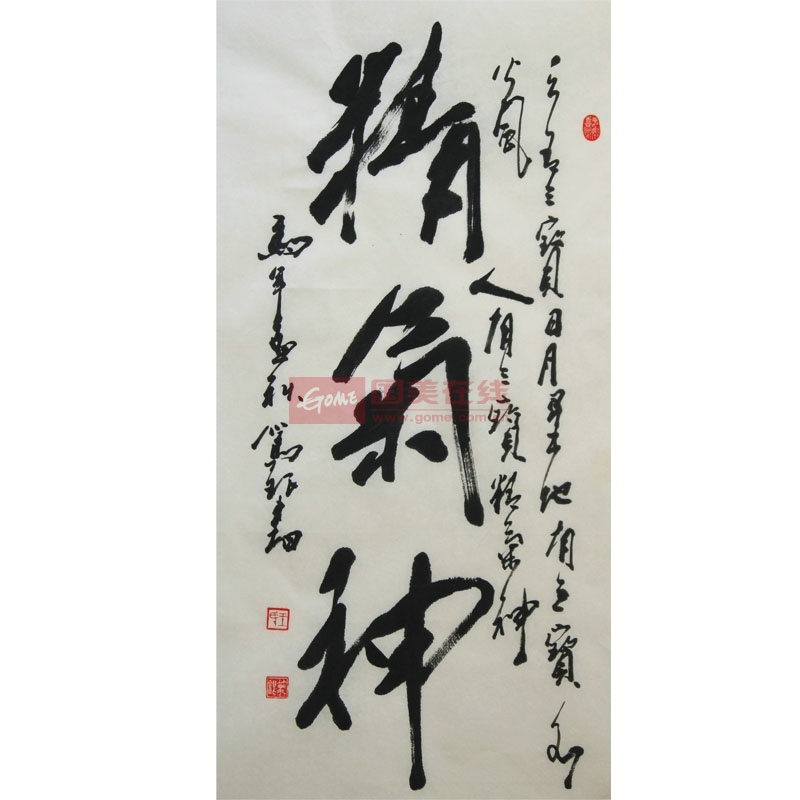 天有三寶日月星地有三寶水
火風人有三寶精氣神
精氣神
馬年
GOME 国美在线
www.gome.com.cn